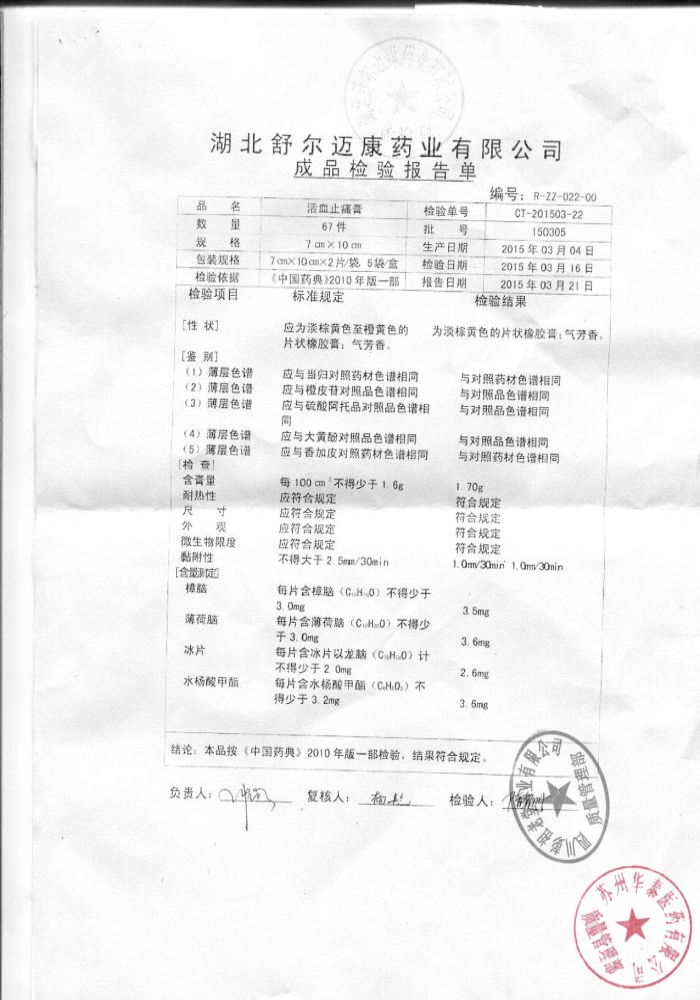 湖北舒尔迈康药业有限公司
成品检验报告单
编号：R-ZZ-022-00
品 名 活血止痛膏 检验单号 CT-201503-22
数 量 67件 批 号 150305
规 格 7㎝×10㎝ 生产日期 2015年03月04日
包装规格 7㎝×10㎝×2片/袋，5袋/盒 检验日期 2015年03月16日
检验依据 《中国药典》2010年版一部 报告日期 2015年03月21日
检验项目 标准规定 检验结果
[性 状] 应为淡棕黄色至橙黄色的 为淡棕黄色的片状橡胶膏；气芳香。
片状橡胶膏；气芳香。
[鉴 别]
(1) 薄层色谱 应与当归对照药材色谱相同 与对照药材色谱相同
(2) 薄层色谱 应与橙皮苷对照品色谱相同 与对照品色谱相同
(3) 薄层色谱 应与硫酸阿托品对照品色谱相 与对照品色谱相同
同
(4) 薄层色谱 应与大黄酚对照品色谱相同 与对照品色谱相同
(5) 薄层色谱 应与香加皮对照药材色谱相同 与对照药材色谱相同
[检 查]
含膏量 每100㎝²不得少于1.6g 1.70g
耐热性 应符合规定 符合规定
尺 寸 应符合规定 符合规定
外 观 应符合规定 符合规定
微生物限度 应符合规定 符合规定
黏附性 不得大于2.5mm/30min 1.0mm/30min 1.0mm/30min
[含量测定]
樟脑 每片含樟脑（C₁₀H₁₆O）不得少于
3.0mg 3.5mg
薄荷脑 每片含薄荷脑（C₁₀H₂₀O）不得少
于3.0mg 3.6mg
冰片 每片含冰片以龙脑（C₁₀H₁₈O）计
不得少于2.0mg 2.6mg
水杨酸甲酯 每片含水杨酸甲酯（C₈H₈O₃）不
得少于3.2mg 3.6mg
结论：本品按《中国药典》2010年版一部检验，结果符合规定。
负责人： 复核人： 检验人：
质量管理部
苏州华泰医药有限公司
质量管理部